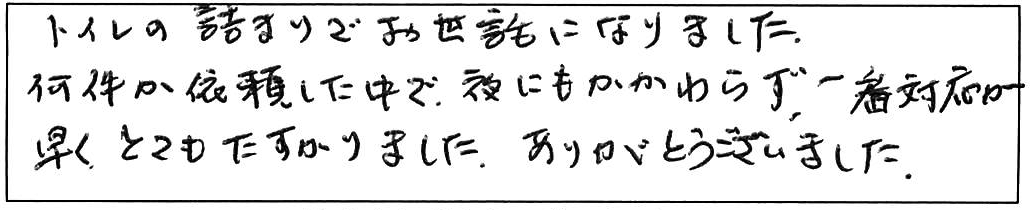 トイレの詰まりでお世話になりました.
何件か依頼した中で、夜にもかかわらず、一番対応が
早く、とてもたすかりました。ありがとうございました.